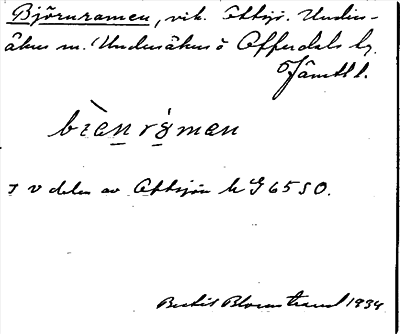 Björnramen, vik. Ottsjö. Undersåkers
m. Undersåkers o Offerdals tg.
Jämtl l.
bìœn ràman
I v delen av Ottsjön k G 65 SO.
Bertil Blomstrand 1934